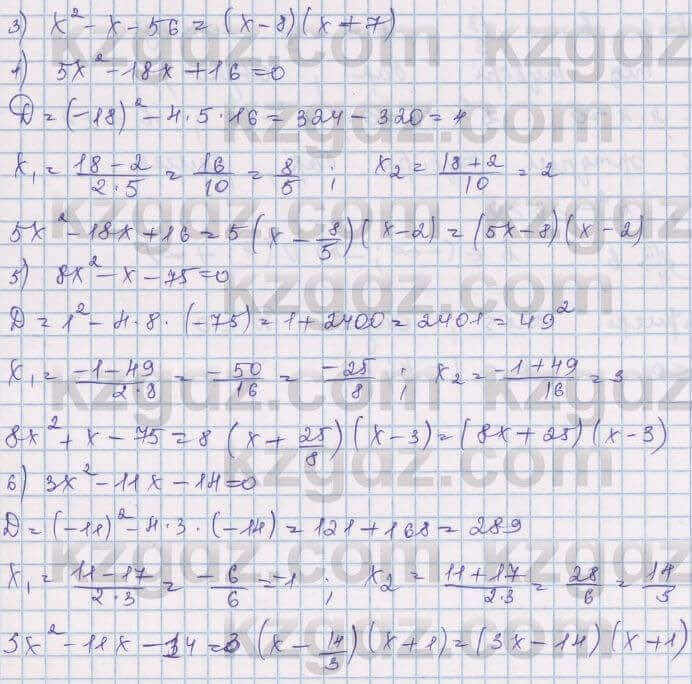 3) x² - x - 56 = (x - 8)(x + 7)
4) 5x² - 18x + 16 = 0
D = (-18)² - 4·5·16 = 324 - 320 = 4
x₁ = (18 - 2)/(2·5) = 16/10 = 8/5 ; x₂ = (18 + 2)/10 = 2
5x² - 18x + 16 = 5(x - 8/5)(x - 2) = (5x - 8)(x - 2)
5) 8x² - x - 75 = 0
D = 1² - 4·8·(-75) = 1 + 2400 = 2401 = 49²
x₁ = (-1 - 49)/(2·8) = -50/16 = -25/8 ; x₂ = (-1 + 49)/16 = 3
8x² + x - 75 = 8(x + 25/8)(x - 3) = (8x + 25)(x - 3)
6) 3x² - 11x - 14 = 0
D = (-11)² - 4·3·(-14) = 121 + 168 = 289
x₁ = (11 - 17)/(2·3) = -6/6 = -1 ; x₂ = (11 + 17)/(2·3) = 28/6 = 14/3
3x² - 11x - 14 = 3(x - 14/3)(x + 1) = (3x - 14)(x + 1)
kzgdz.com